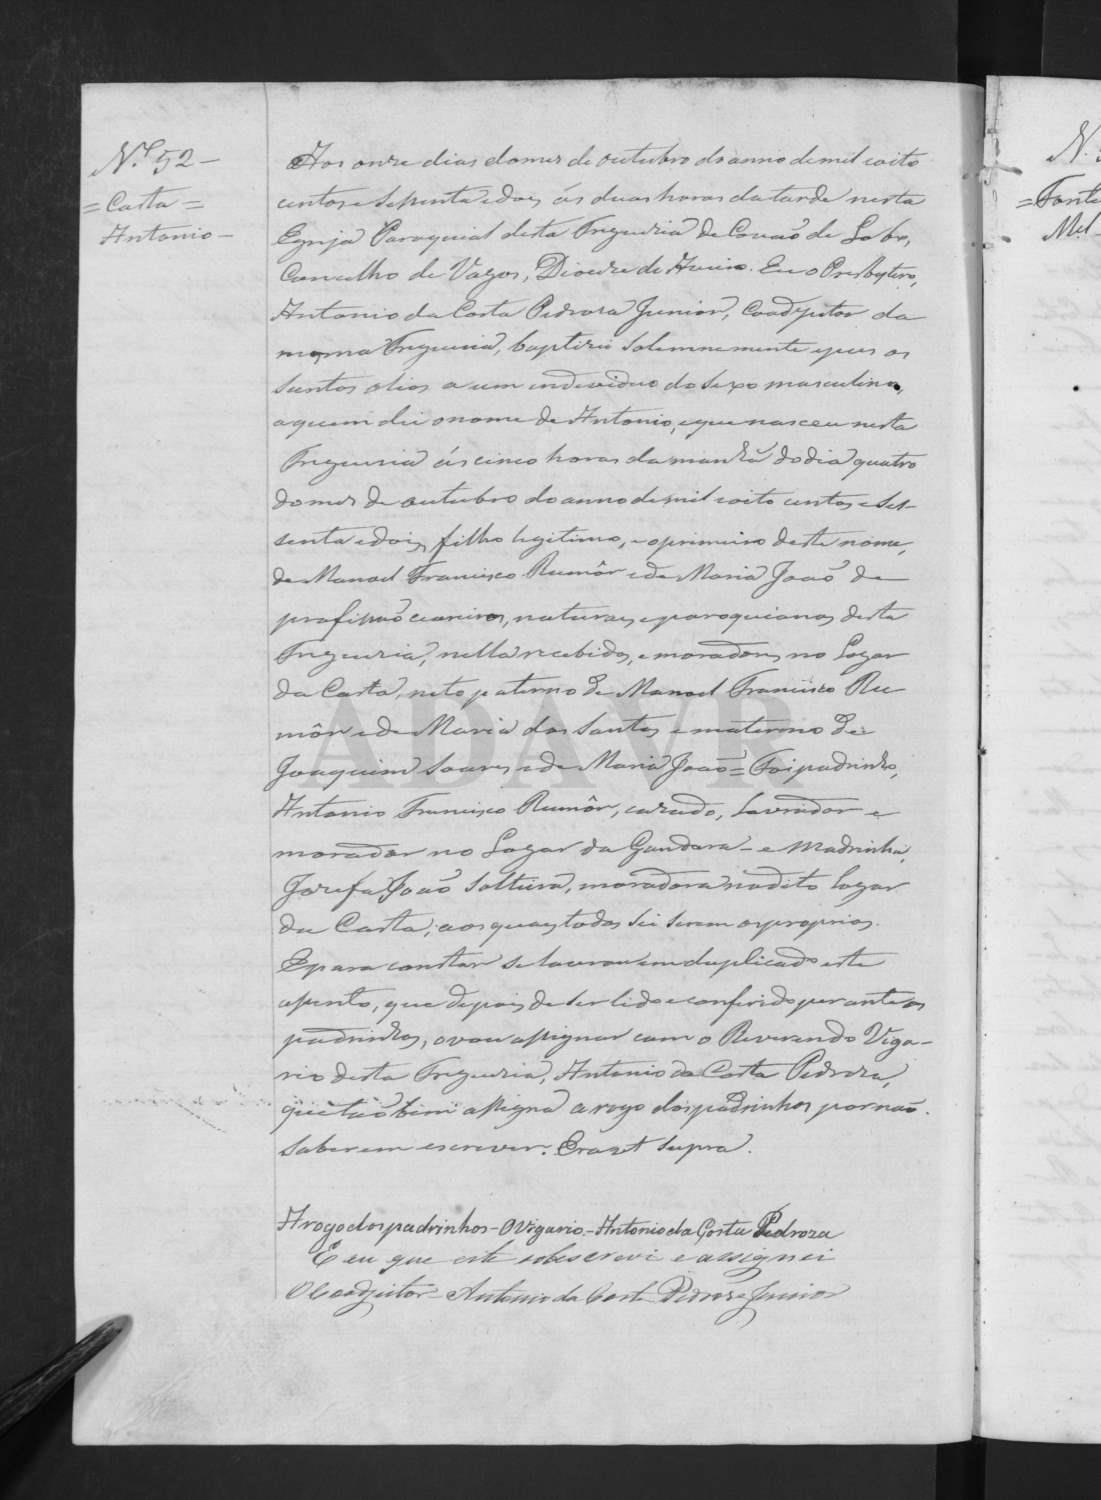 N.º 52 –
= Carta =
Antonio –
Aos onze dias do mez de outubro do anno de mil oito
centos e sessenta e dois ás duas horas da tarde nesta
Egreja Paroquial desta Freguezia de Covão de Lobo,
Concelho de Vagos, Diocese de Aveiro. Eu o Presbytero,
Antonio da Costa Pedroza Junior, Coadjutor da
mesma Freguezia, baptizei solemnemente e puz os
Santos olios a um individuo do sexo masculino,
a quem dei o nome de Antonio, e que nasceu nesta
Freguezia ás cinco horas da manhã do dia quatro
do mez de outubro do anno de mil oito centos e ses-
senta e dois, filho legitimo, e o primeiro deste nome,
de Manoel Francisco Rumôr e de Maria João de
profissão, naturaes e paroquianos desta
Freguezia, nella recebidos, e moradores no Logar
da Carta, neto paterno de Manoel Francisco Ru
môr e de Maria dos Santos e materno de
Joaquim Soares e de Maria João = Foi padrinho,
Antonio Francisco Rumôr, cazado, lavrador e
morador no Logar da Gandara – e Madrinha,
Jozefa João solteira, moradora no dito logar
da Carta; aos quaes todos sei serem os proprios.
E para constar se lavrou em duplicado este
assento, que depois de ser lido e conferido perante os
padrinhos, o vou assignar com o Reverendo Viga-
rio desta Freguezia, Antonio da Costa Pedroza,
que tão bem assigna a rogo dos padrinhos por não
saberem escrever. Era ut supra.
A rogo dos padrinhos – O Vigario – Antonio da Costa Pedroza
E eu que este subscrevi e assignei
O Coadjutor – Antonio da Costa Pedroza Junior
ADAVR
N.
= Fonte
Mel –